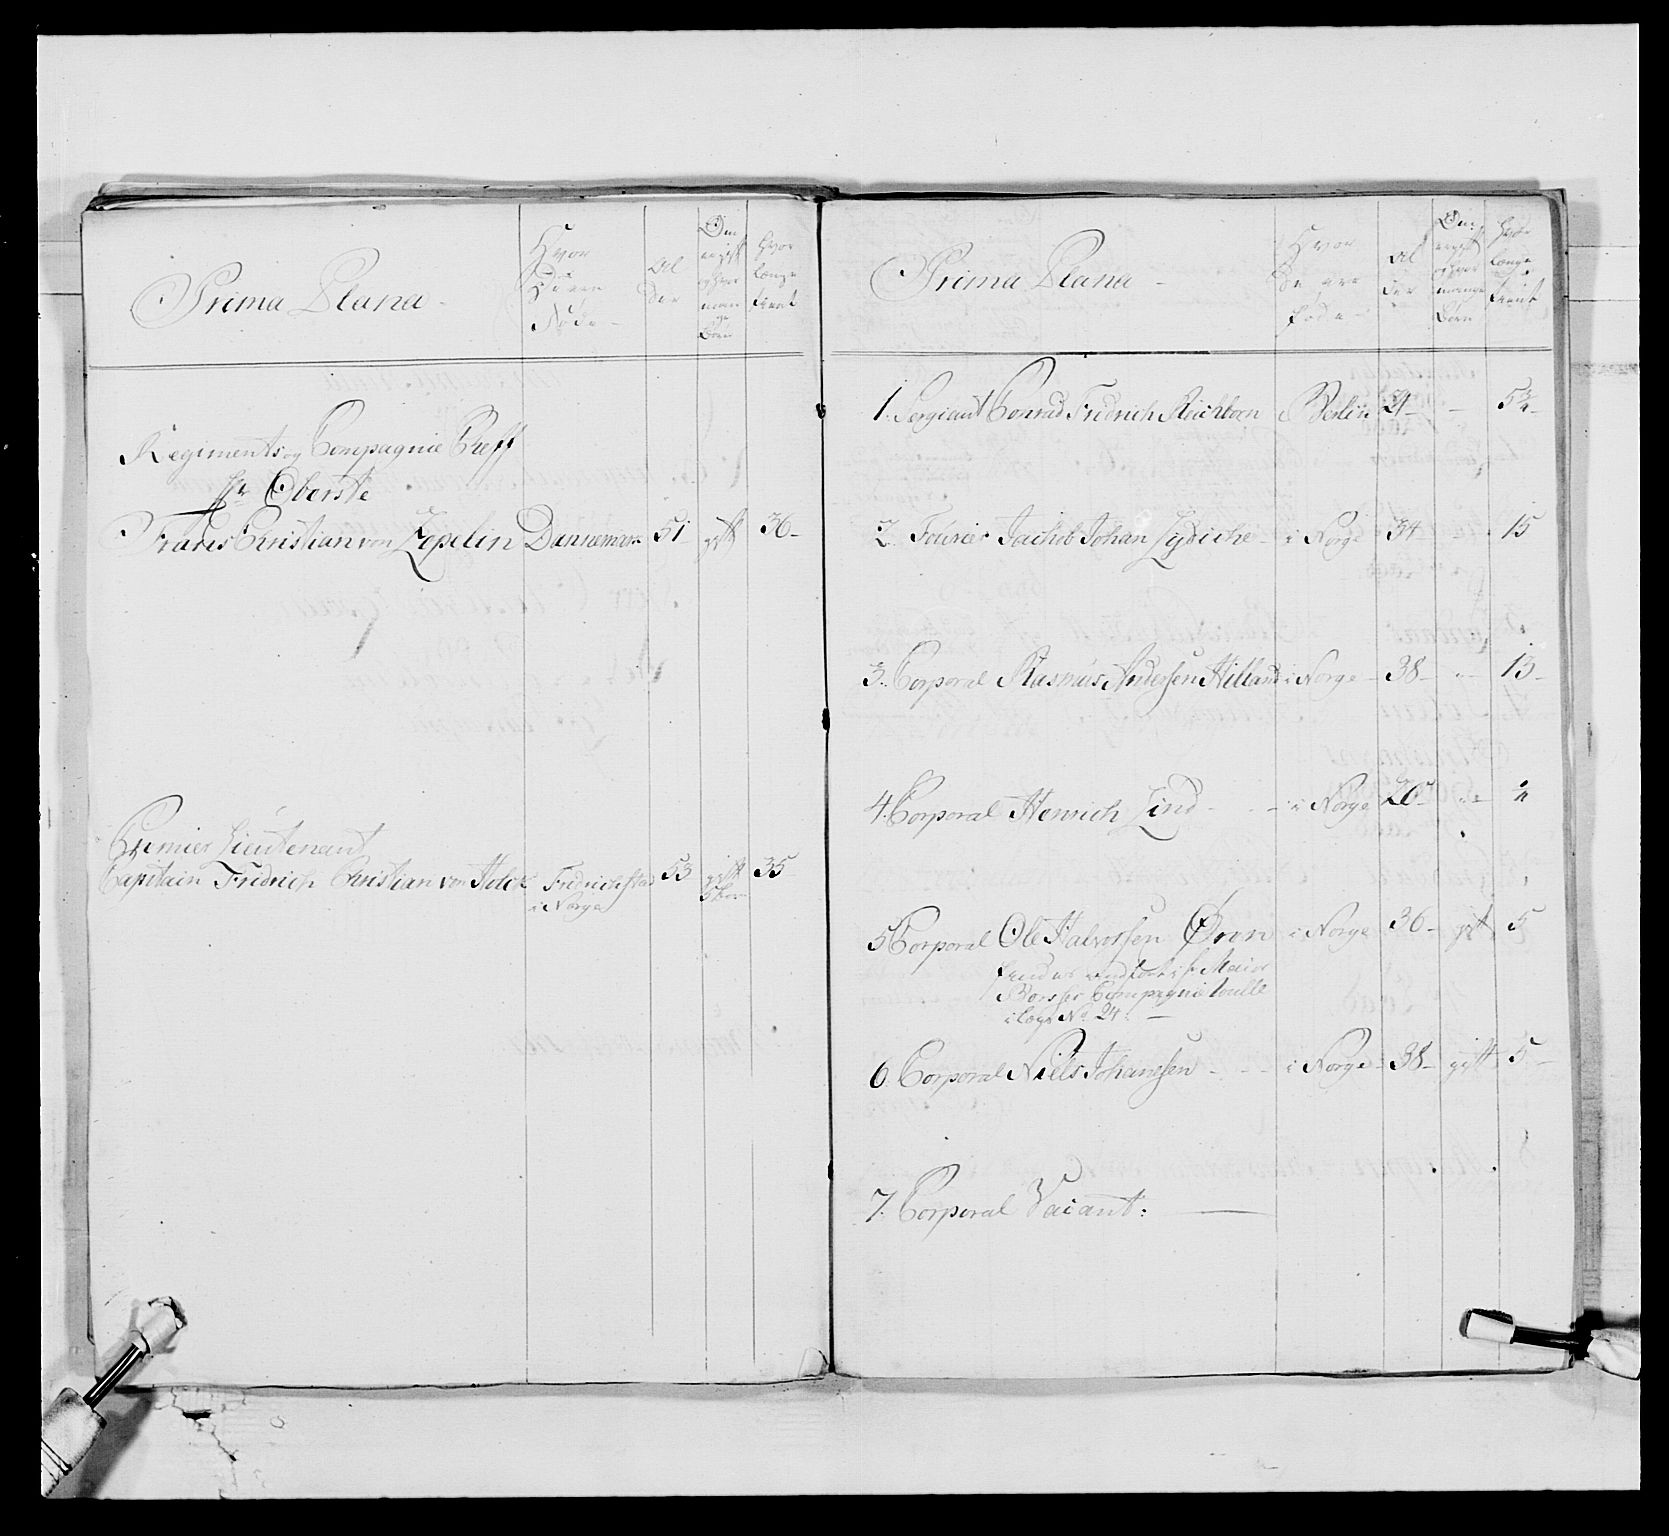 Prima Plana
Hvor
Føde
Al
der
Om
gift
og hvor
man
ge
Børn
Hvor
længe
tient
Regiments og Compagnie Cheff
Hr Oberste
Frans Christian von Zepelin Dannemark 51 gift 36
Premier Lieutenant
Capitain Fridrich Christian von Holck Fridrichstad 53 gift 35
i Norge 5 børn
Prima Plana
Hvor
De ere
føde
Al
der
Om
gift
og hvor
mange
Børn
Hvor
længe
tient
1. Sergiant Conrad Fridrich Reichborn Berlin 21 5¾
2. Fourier Jachob Johan Lydiche i Norge 34 15
3. Corporal Rasmus Andersen Hilland i Norge 38 13
4. Corporal Henrich Lind i Norge 26
5 Corporal Ole Halvorsen Ørvn i Norge 36 gift 5
Maior
Compagnie Rulle
i Læg No 24.
6. Corporal Niels Johannsen i Norge 38 gift 5
7. Corporal Vacant: